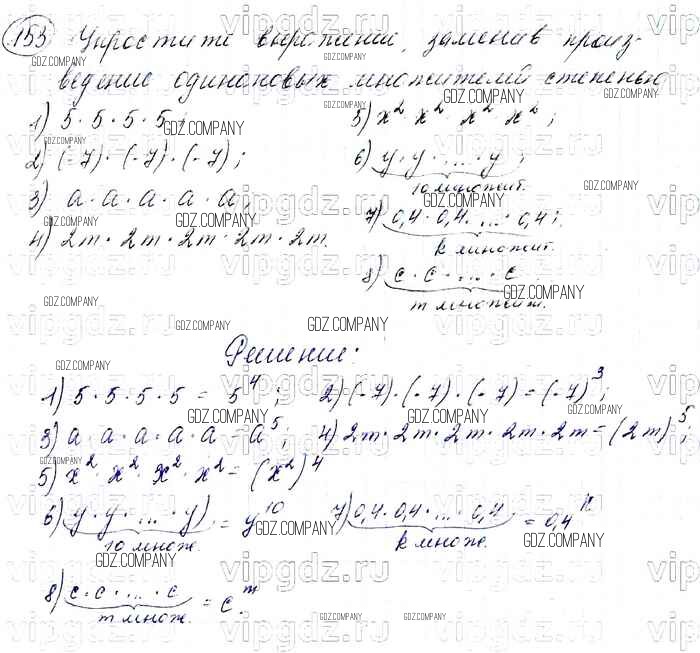 153 Упростите выражение, заменив произ-
ведение одинаковых множителей степенью
1) 5 · 5 · 5 · 5 ;
2) (-7) · (-7) · (-7) ;
3) a · a · a · a · a ;
4) 2m · 2m · 2m · 2m · 2m.
5) x² · x² · x² · x² ;
6) y · y · ... · y ;
10 множит.
7) 0,4 · 0,4 · ... · 0,4 ;
k множит.
8) c · c · ... · c
m множит.
Решение:
1) 5 · 5 · 5 · 5 = 5⁴ ; 2) (-7) · (-7) · (-7) = (-7)³ ;
3) a · a · a · a · a = a⁵ ; 4) 2m · 2m · 2m · 2m · 2m = (2m)⁵ ;
5) x² · x² · x² · x² = (x²)⁴
6) y · y · ... · y = y¹⁰ 7) 0,4 · 0,4 · ... · 0,4 = 0,4ᵏ
10 множ. k множ.
8) c · c · ... · c = cᵐ.
m множ.
vipgdz.ru
GDZ.COMPANY